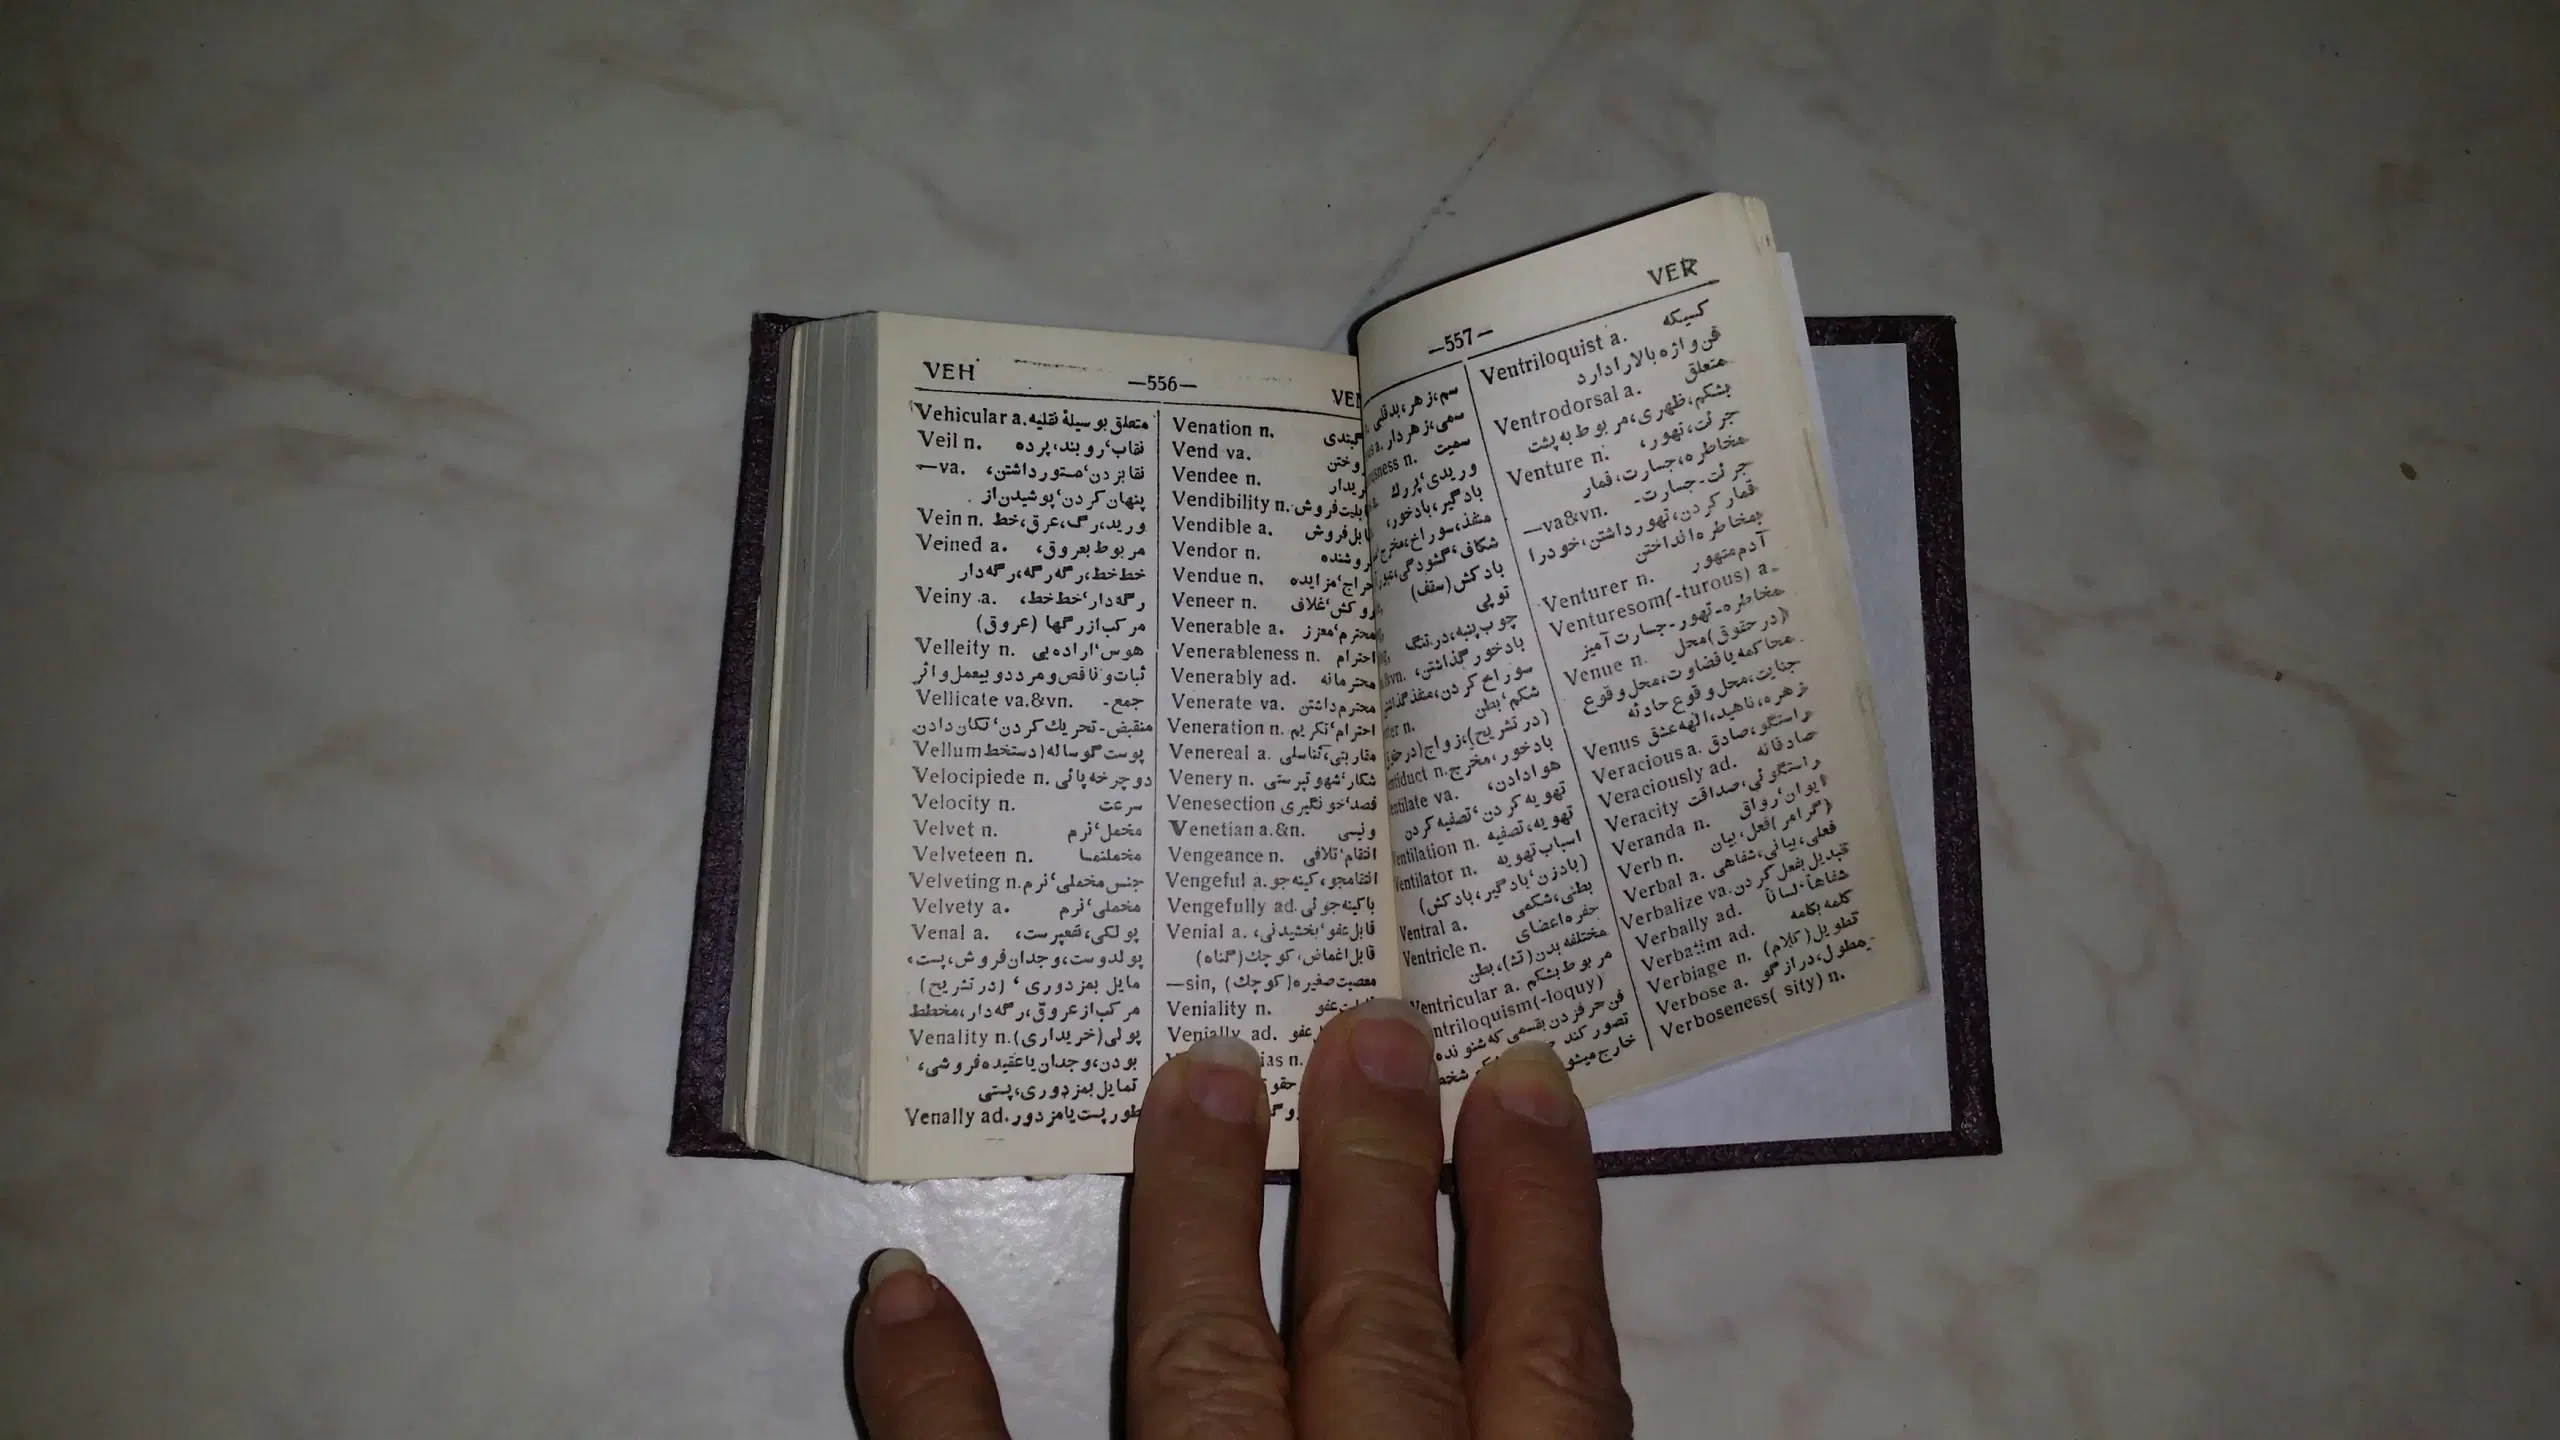 VEH
—556—
Vehicular a. متعلق بوسیلهٔ نقلیه
Veil n. نقاب،روبند،پرده
—va. نقابزدن،مستورداشتن،
پنهان کردن،پوشیدن‌از
Vein n. ورید،رگ،عرق،خط
Veined a. مربوط بعروق،
خط‌خط،رگه‌رگه،رگه‌دار
Veiny a. رگه‌دار،خط‌خط،
مرکب‌ازرگها (عروق)
Velleity n. هوس،اراده‌بی
ثبات‌وناقص‌ومرددوبیعمل‌واثر
Vellicate va.&vn. جمع-
منقبض-تحریك کردن،تکان‌دادن
Vellum پوست گوساله(دستخط
Velocipiede n. دوچرخه‌پائی
Velocity n. سرعت
Velvet n. مخمل،نرم
Velveteen n. مخملنما
Velveting n. جنس‌مخملی،نرم
Velvety a. مخملی،نرم
Venal a. پولکی،نفعپرست،
پولدوست،وجدان‌فروش،پست،
مایل بمزدوری، (درتشریح)
مرکب‌ازعروق،رگه‌دار،مخطط
Venality n. پولی(خریداری)
بودن،وجدان‌یاعقیده‌فروشی،
تمایل‌بمزدوری،پستی
Venally ad. طورپست‌یامزدور
Venation n.
Vend va.
Vendee n.
Vendibility n.
Vendible a.
Vendor n.
Vendue n. مزایده
Veneer n. روکش،غلاف
Venerable a. محترم،معزز
Venerableness n. احترام
Venerably ad. محترمانه
Venerate va. محترم‌داشتن
Veneration n. احترام،تکریم
Venereal a. مقاربتی،تناسلی
Venery n. شکار،شهوتپرستی
Venesection فصد،خونگیری
Venetian a.&n. ونیسی
Vengeance n. انتقام،تلافی
Vengeful a. انتقامجو،کینه‌جو
Vengefully ad. باکینه‌جوئی
Venial a. قابل‌عفو،بخشیدنی،
قابل‌اغماض،کوچك(گناه)
—sin, معصیت‌صغیره(کوچك)
Veniality n. عفو
Venially ad. عفو
—557—
VER
سم،زهر،بدقلبی
سمی،زهردار
n. سمیت
وریدی،پررگ
بادگیر،بادخور،
منفذ،سوراخ،مخرج
شکاف،گشودگی
بادکش(سقف)
توپی
چوب‌پنبه،در،تنگ
بادخورگذاشتن،
سوراخ کردن،منفذگذاشتن
n. شکم،بطن
(درتشریح)،زواج
n. بادخور،مخرج
va. هوادادن،
تهویه کردن،تصفیه کردن
n. تهویه،تصفیه
n. اسباب‌تهویه
(بادزن،بادگیر،بادکش)
Ventral a. بطنی،شکمی
Ventricle n. حفره‌اعضای
مختلفه‌بدن(تش)،بطن
Ventricular a. مربوط‌بشکم
(-loquy)
فن‌حرف‌زدن‌بقسمی که‌شنونده
تصورکند
شخص خارج
Ventriloquist a. کسیکه
فن‌واژه‌بالارادارد
Ventrodorsal a. متعلق
بشکم،ظهری،مربوط‌به‌پشت
Venture n. جرئت،تهور،
مخاطره،جسارت،قمار
—va&vn. جرئت-جسارت-
قمارکردن،تهورداشتن،خودرا
بمخاطره‌انداختن
Venturer n. آدم‌متهور
Venturesom(-turous) a.
مخاطره-تهور-جسارت‌آمیز
Venue n. (درحقوق)محل
محاکمه‌یاقضاوت،محل‌وقوع
جنایت،محل‌وقوع‌حادثه
Venus زهره،ناهید،الهه‌عشق
Veracious a. راستگو،صادق
Veraciously ad. صادقانه
Veracity راستگوئی،صداقت
Veranda n. ایوان،رواق
Verb n. (گرامر)فعل،بیان
Verbal a. فعلی،بیانی،شفاهی
Verbalize va. تبدیل‌بفعل کردن
Verbally ad. شفاهاً-لساناً
Verbatim ad. کلمه‌بکلمه
Verbiage n. تطویل(کلام)
Verbose a. مطول،درازگو
Verboseness( sity) n.